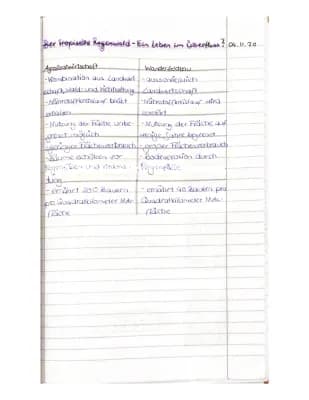 Der tropische Regenwald - Ein Leben im Überfluss? 06.11.20
Agroforstwirtschaft
- Kombination aus Landwirt
schaft, Wald- und
- Nährstoffkreislauf bleibt
erhalten
- Nutzung der Fläche unbe
grenzt möglich
- geringer Flächenverbrauch
- Bäume schützen vor
und
dung
- ernährt Bauern
pro Quadratkilometer
Fläche
Wanderfeldbau
- ausschließlich
Landwirtschaft
- Nährstoffkreislauf wird
zerstört
- Nutzung der Fläche auf
wenige Jahre begrenzt
- großer Flächenverbrauch
- Bodenerosion durch
Regenfälle
- ernährt 40 Bauern pro
Quadratkilometer
Fläche